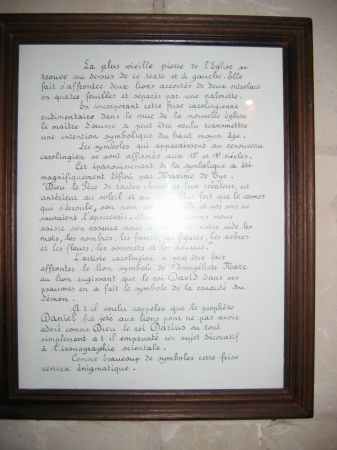 La plus vieille pierre de l'Eglise se
trouve au dessus de ce texte et à gauche. Elle
fait s'affronter deux lions accostés de deux
en quatre feuilles et séparés par une palmette.
En incorporant cette frise carolingienne
rudimentaire dans le mur de la nouvelle église
le maître d'œuvre a peut être voulu transmettre
une intention symbolique du haut moyen âge.
Les symboles qui apparaissent au renouveau
carolingien se sont affirmés aux et siècles.
Cet épanouissement de la symbolique a été
magnifiquement défini par Maxime de Tyr.
"Dieu le Père de toutes choses et leur créateur, est
antérieur au soleil et au plus fort que le temps
qui s'écoule, son nom et nos sens ne
sauraient nous
saisir son essence nous aide les
mots, les nombres, les figures, les arbres
et les fleurs, les sommets et les
L'artiste carolingien a peut être fait
affronter le lion symbole de l'évangéliste Marc
au lion rugissant que le roi David dans ses
psaumes en a fait le symbole de la cruauté du
démon.
A t'il voulu rappeler que le prophète
Daniel fut jeté aux lions pour ne pas avoir
adoré comme Dieu le roi Darius ou tout
simplement a t il emprunté un sujet décoratif
à l'iconographie orientale.
Comme beaucoup de symboles cette frise
restera énigmatique.